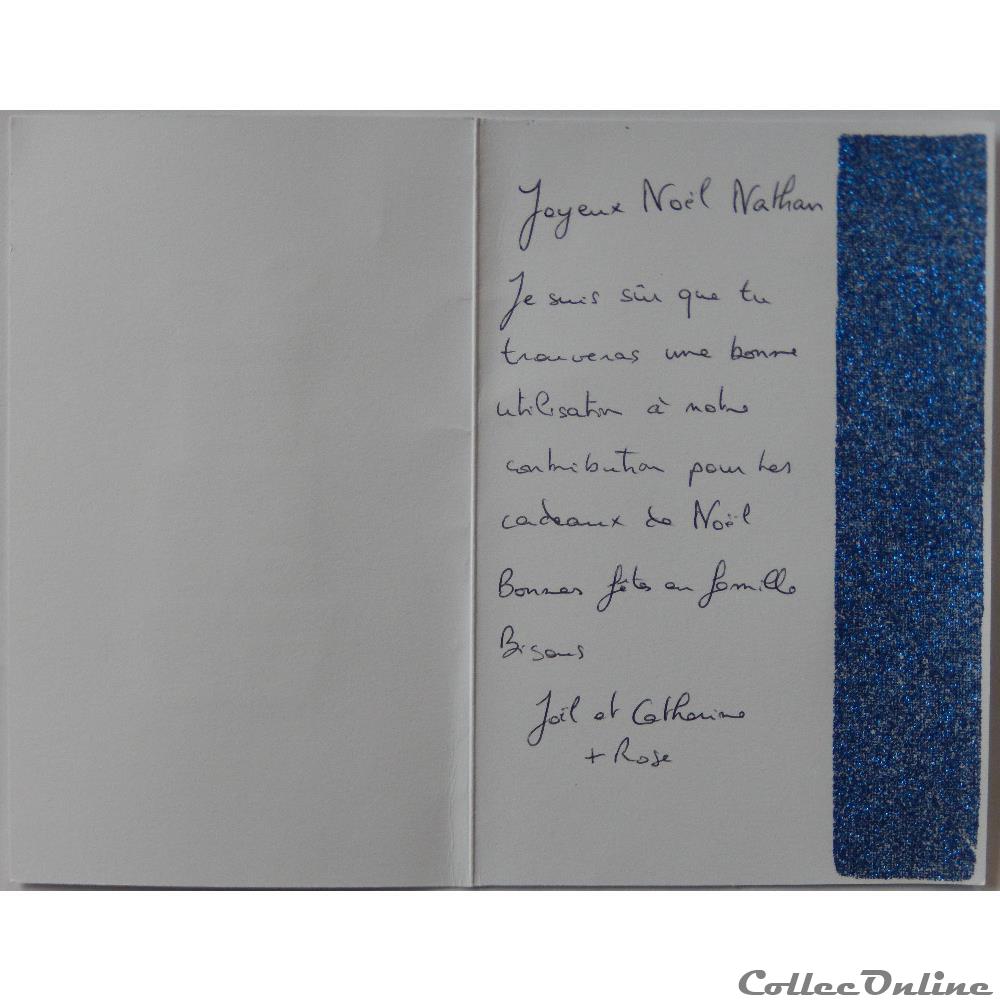 Joyeux Noël Nathan
Je suis sûr que tu
trouveras une bonne
utilisation à notre
contribution pour tes
cadeaux de Noël
Bonnes fêtes en famille
Bisous
Joël et Catherine
+ Rose
CollecOnline